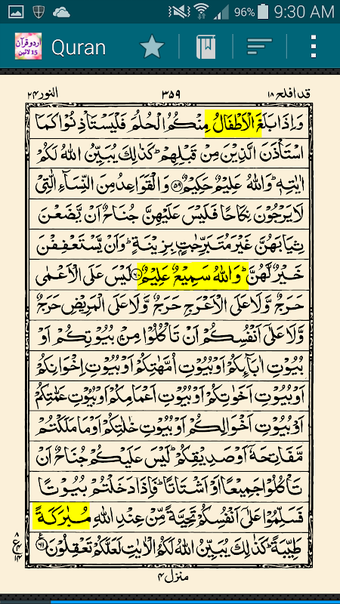 96% 9:30 AM
اردو قرآن
15 لائین
Quran
قد افلح ۱۸
۳۵۹
النور ۲۴
وَاِذَا بَلَغَ الْاَطْفَالُ مِنْكُمُ الْحُلُمَ فَلْيَسْتَاْذِنُوْا كَمَا
اسْتَاْذَنَ الَّذِيْنَ مِنْ قَبْلِهِمْ ؕ كَذٰلِكَ يُبَيِّنُ اللّٰهُ لَكُمْ
اٰيٰتِهٖ ؕ وَاللّٰهُ عَلِيْمٌ حَكِيْمٌ ﴿۵۹﴾ وَالْقَوَاعِدُ مِنَ النِّسَآءِ الّٰتِيْ
لَا يَرْجُوْنَ نِكَاحًا فَلَيْسَ عَلَيْهِنَّ جُنَاحٌ اَنْ يَّضَعْنَ
ثِيَابَهُنَّ غَيْرَ مُتَبَرِّجٰتٍۭ بِزِيْنَةٍ ؕ وَاَنْ يَّسْتَعْفِفْنَ
خَيْرٌ لَّهُنَّ ؕ وَاللّٰهُ سَمِيْعٌ عَلِيْمٌ ﴿۶۰﴾ لَيْسَ عَلَى الْاَعْمٰى
حَرَجٌ وَّلَا عَلَى الْاَعْرَجِ حَرَجٌ وَّلَا عَلَى الْمَرِيْضِ حَرَجٌ
وَّلَا عَلٰٓى اَنْفُسِكُمْ اَنْ تَاْكُلُوْا مِنْۢ بُيُوْتِكُمْ اَوْ
بُيُوْتِ اٰبَآئِكُمْ اَوْ بُيُوْتِ اُمَّهٰتِكُمْ اَوْ بُيُوْتِ اِخْوَانِكُمْ
اَوْ بُيُوْتِ اَخَوٰتِكُمْ اَوْ بُيُوْتِ اَعْمَامِكُمْ اَوْ بُيُوْتِ عَمّٰتِكُمْ
اَوْ بُيُوْتِ اَخْوَالِكُمْ اَوْ بُيُوْتِ خٰلٰتِكُمْ اَوْ مَا مَلَكْتُمْ
مَّفَاتِحَهٗٓ اَوْ صَدِيْقِكُمْ ؕ لَيْسَ عَلَيْكُمْ جُنَاحٌ اَنْ
تَاْكُلُوْا جَمِيْعًا اَوْ اَشْتَاتًا ؕ فَاِذَا دَخَلْتُمْ بُيُوْتًا
فَسَلِّمُوْا عَلٰٓى اَنْفُسِكُمْ تَحِيَّةً مِّنْ عِنْدِ اللّٰهِ مُبٰرَكَةً
طَيِّبَةً ؕ كَذٰلِكَ يُبَيِّنُ اللّٰهُ لَكُمُ الْاٰيٰتِ لَعَلَّكُمْ تَعْقِلُوْنَ ﴿۶۱﴾
۸
ع
۱۴
منزل ۴